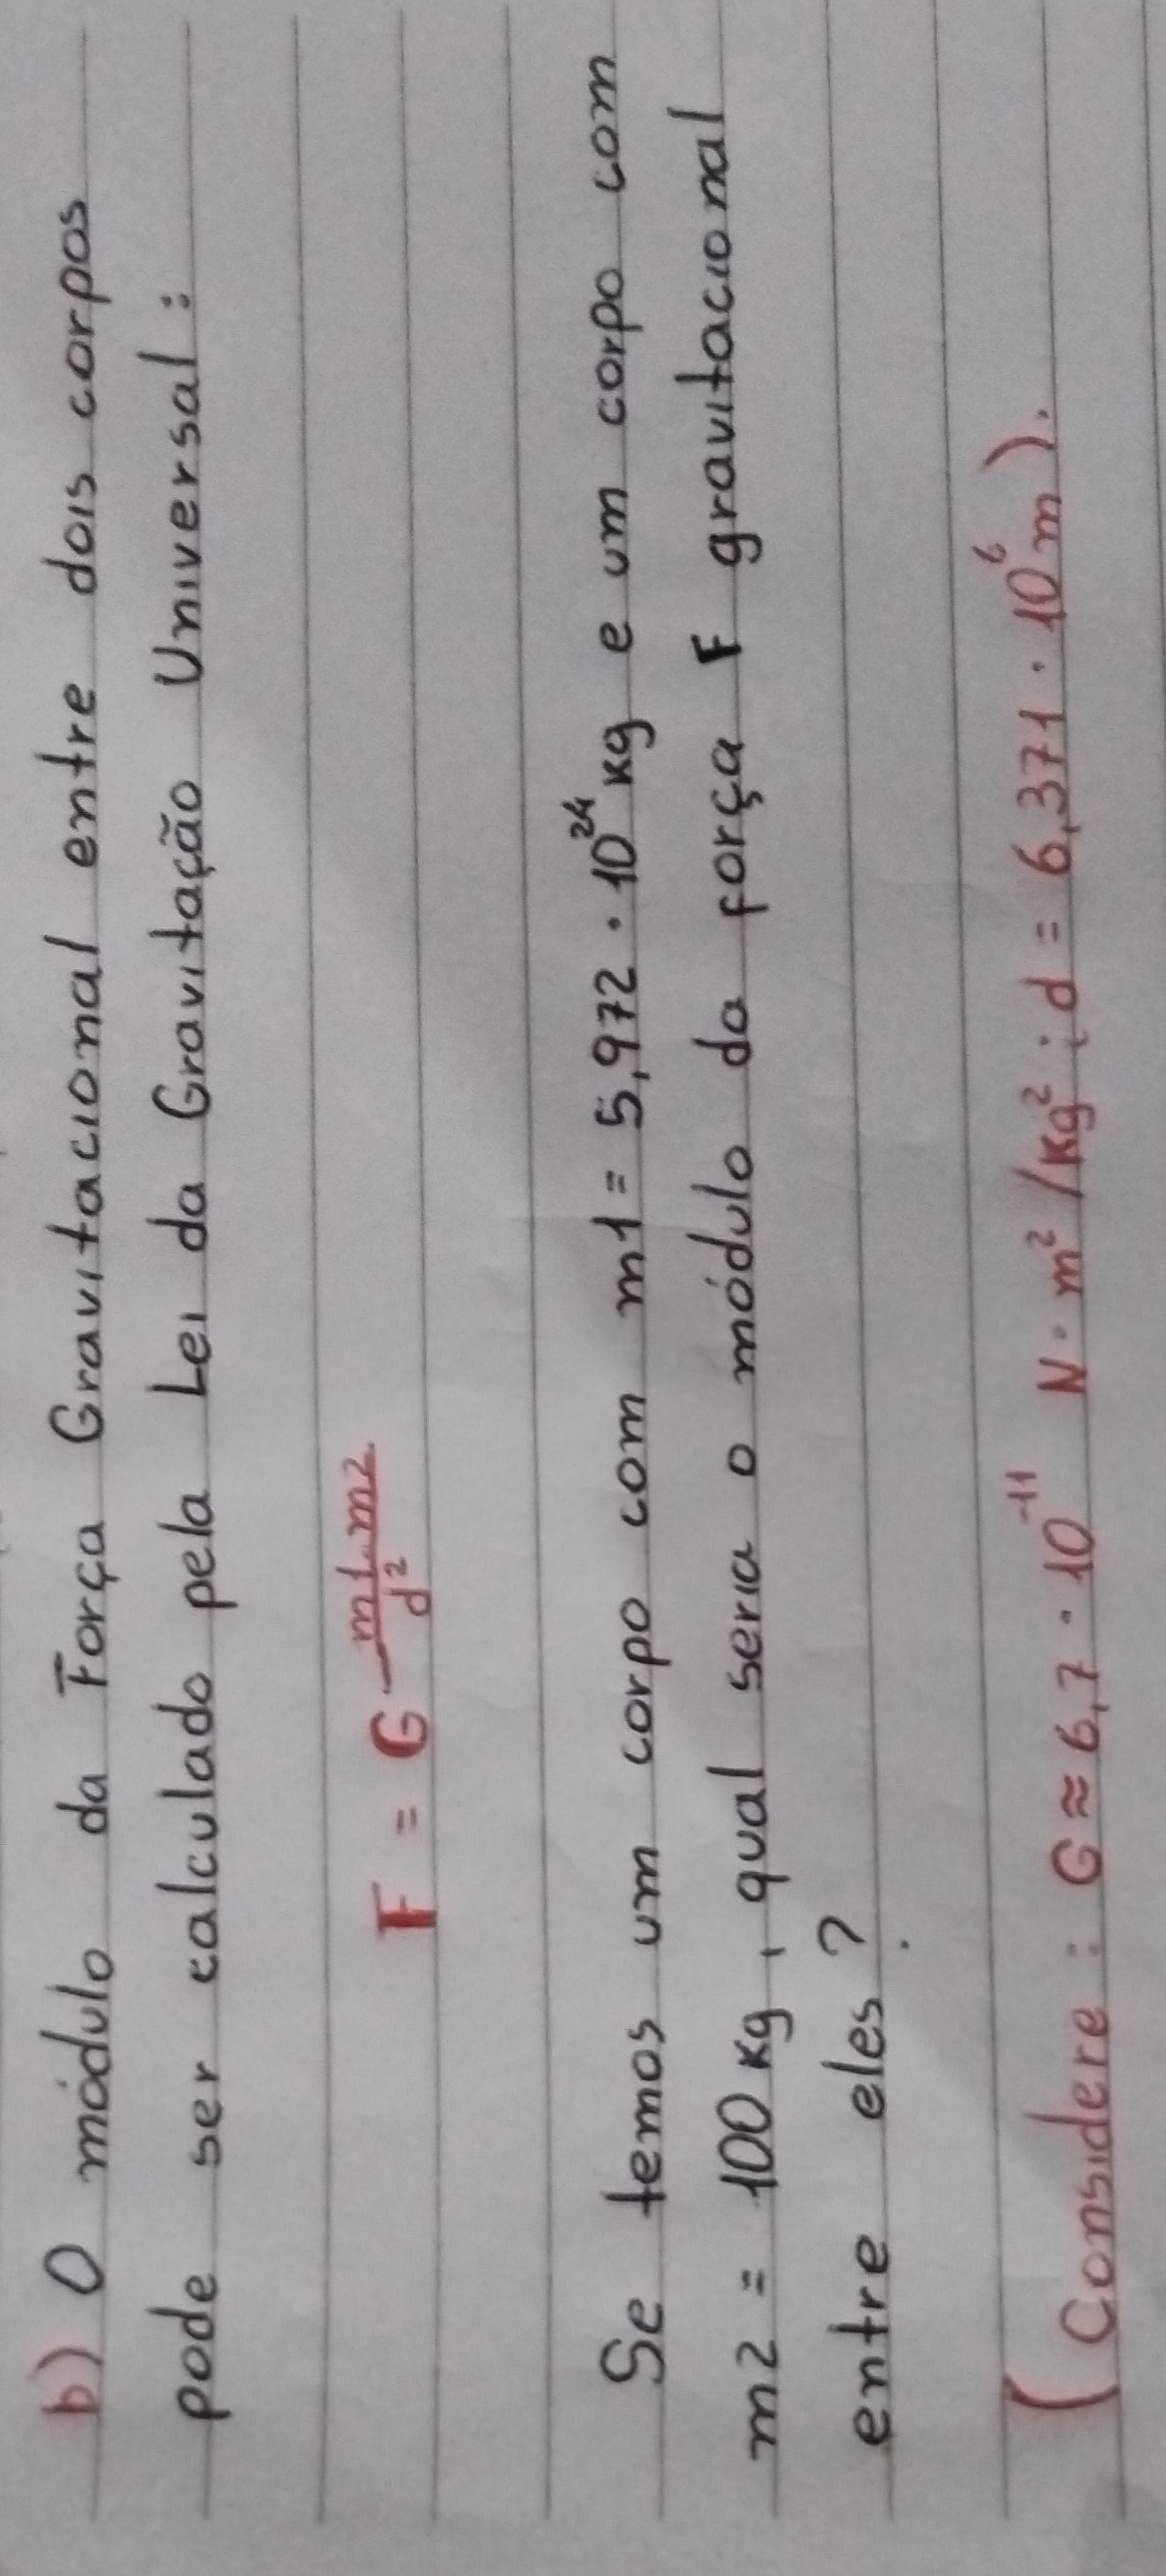 b) O módulo da Força Gravitacional entre dois corpos
pode ser calculado pela Lei da Gravitação Universal:
F = G m1.m2/d²
Se temos um corpo com m1 = 5,972 · 10²⁴ kg e um corpo com
m2 = 100 kg, qual seria o módulo da força F gravitacional
entre eles?
(Considere: G ≈ 6,7 · 10⁻¹¹ N · m² / kg²; d = 6,371 · 10⁶ m).